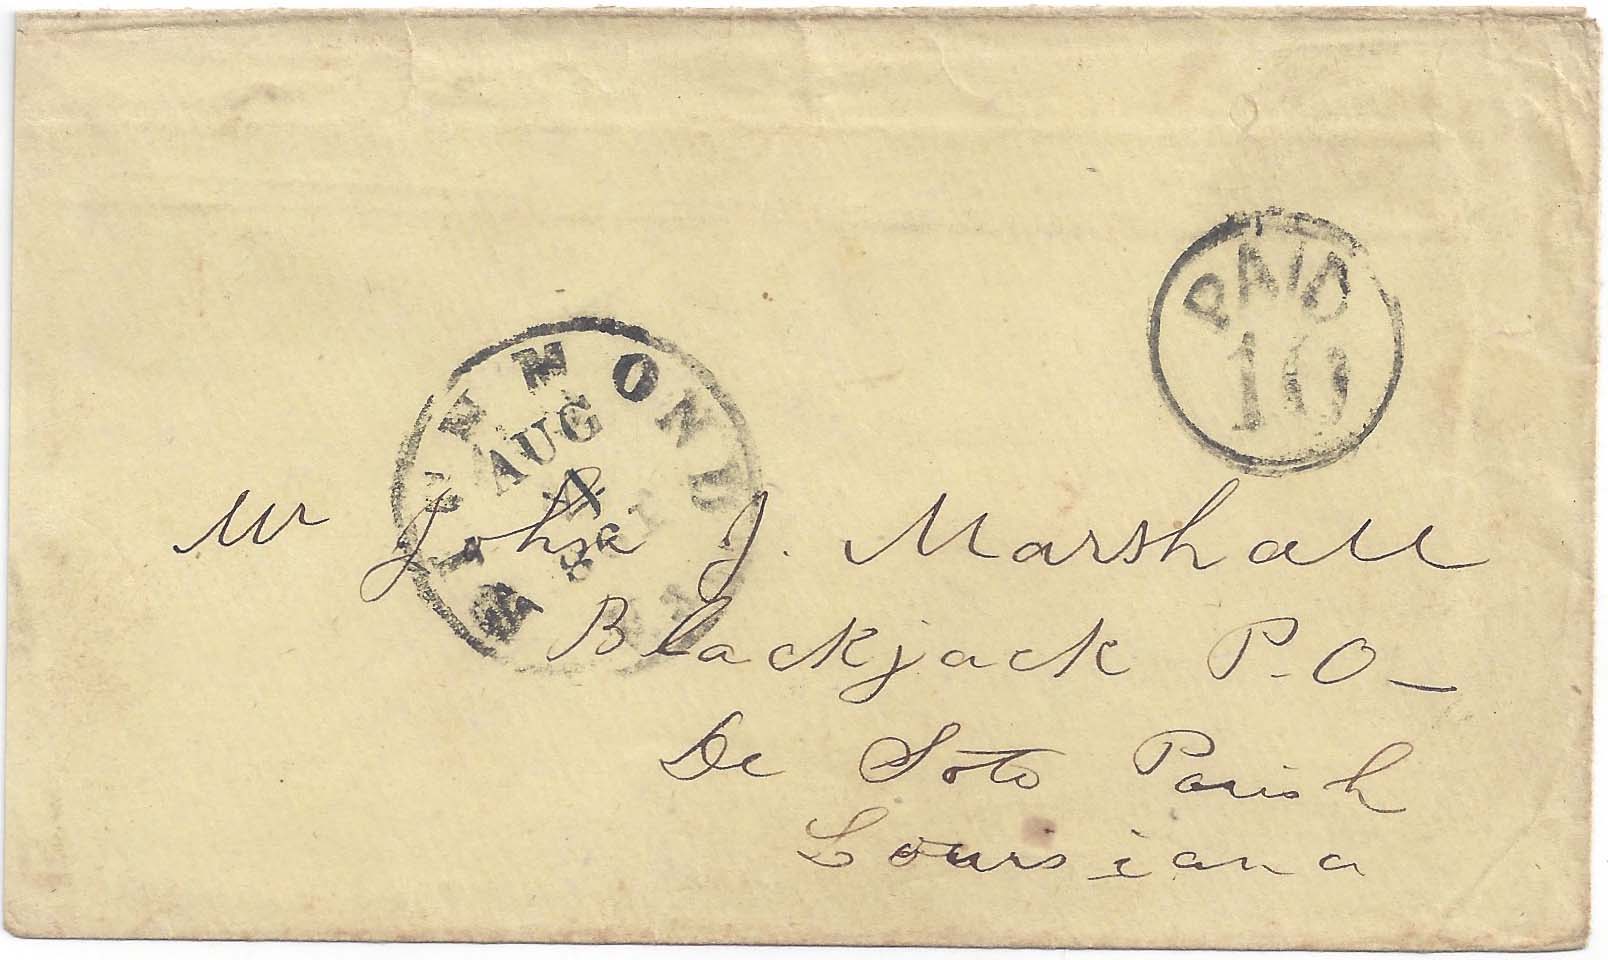 PAID
10
RICHMOND
AUG
VA.
Mr John J. Marshall
Blackjack P.O-
De Soto Parish
Louisiana